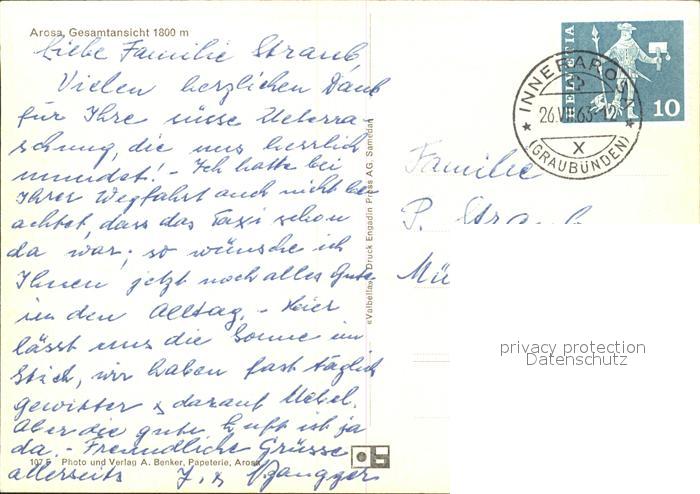 Arosa, Gesamtansicht 1800 m
Liebe Familie Straub,
Vielen herzlichen Dank
für Ihre süsse Ueberra-
schung, die uns herrlich
mundet! - Ich hatte bei
Ihrer Wegfahrt auch nicht be-
achtet, dass das Taxi schon
da war; so wünsche ich
Ihnen jetzt noch alles Gute
in den Alltag. - Hier
lässt uns die Sonne im
Stich, wir haben fast täglich
Gewitter & darauf Nebel.
Aber die gute Luft ist ja
da. - Freundliche Grüsse
allerseits J. &
107 Photo und Verlag A. Benker, Papeterie, Arosa
«Valbella» Druck Engadin Press AG. Samedan
HELVETIA
10
INNERAROSA
26.VII.63
X
(GRAUBÜNDEN)
Familie
P. Straub
Mü
privacy protection
Datenschutz